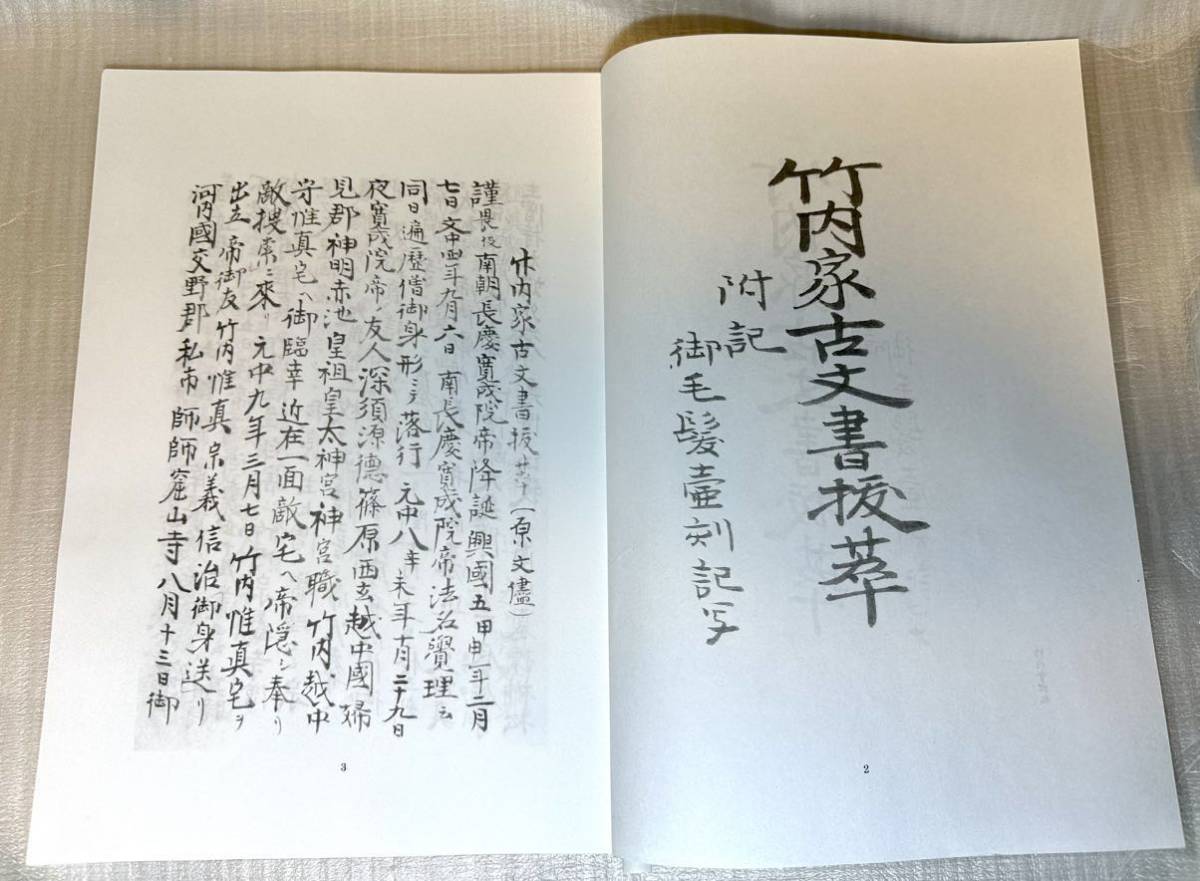 竹内家古文書抜萃
附記
御毛髪壷刻記写
2
竹内家古文書抜萃(原文儘)
謹畏後南朝長慶寛成院帝降誕興國五甲申年二月
七日文中四年九月六日南長慶寛成院帝法名覺理云
同日遍歴僧御身形ニテ落行元中八辛未年十月二十九日
夜寛成院帝ノ友人深須源德篠原西玄越中國婦
見郡神明赤池皇祖皇太神宮神宮職竹内越中
守惟真宅ヘ御臨幸近在一面敵宅ヘ帝隠シ奉リ
敵捜索ニ來リ元中九年三月七日竹内惟真宅ヲ
出立帝御友竹内惟真宗義信治御身送リ
河内國交野郡私市師師窟山寺八月十三日御
3